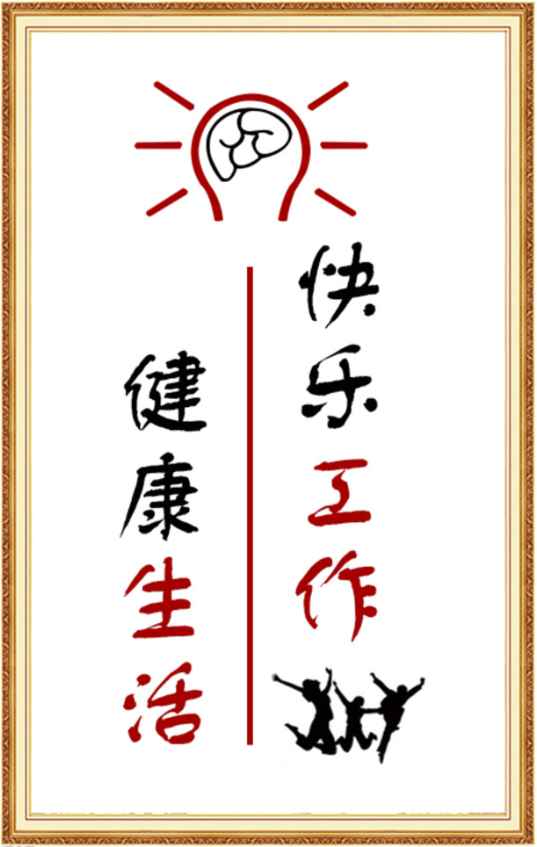 快乐工作
健康生活